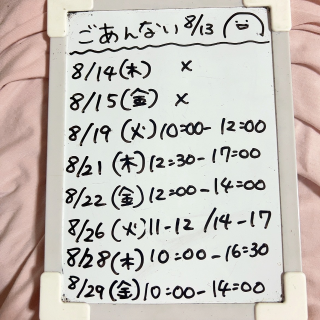 ごあんない 8/13
8/14(木) ×
8/15(金) ×
8/19(火) 10:00-12:00
8/21(木) 12:30-17:00
8/22(金) 12:00-14:00
8/26(火) 11-12/14-17
8/28(木) 10:00-16:30
8/29(金) 10:00-14:00